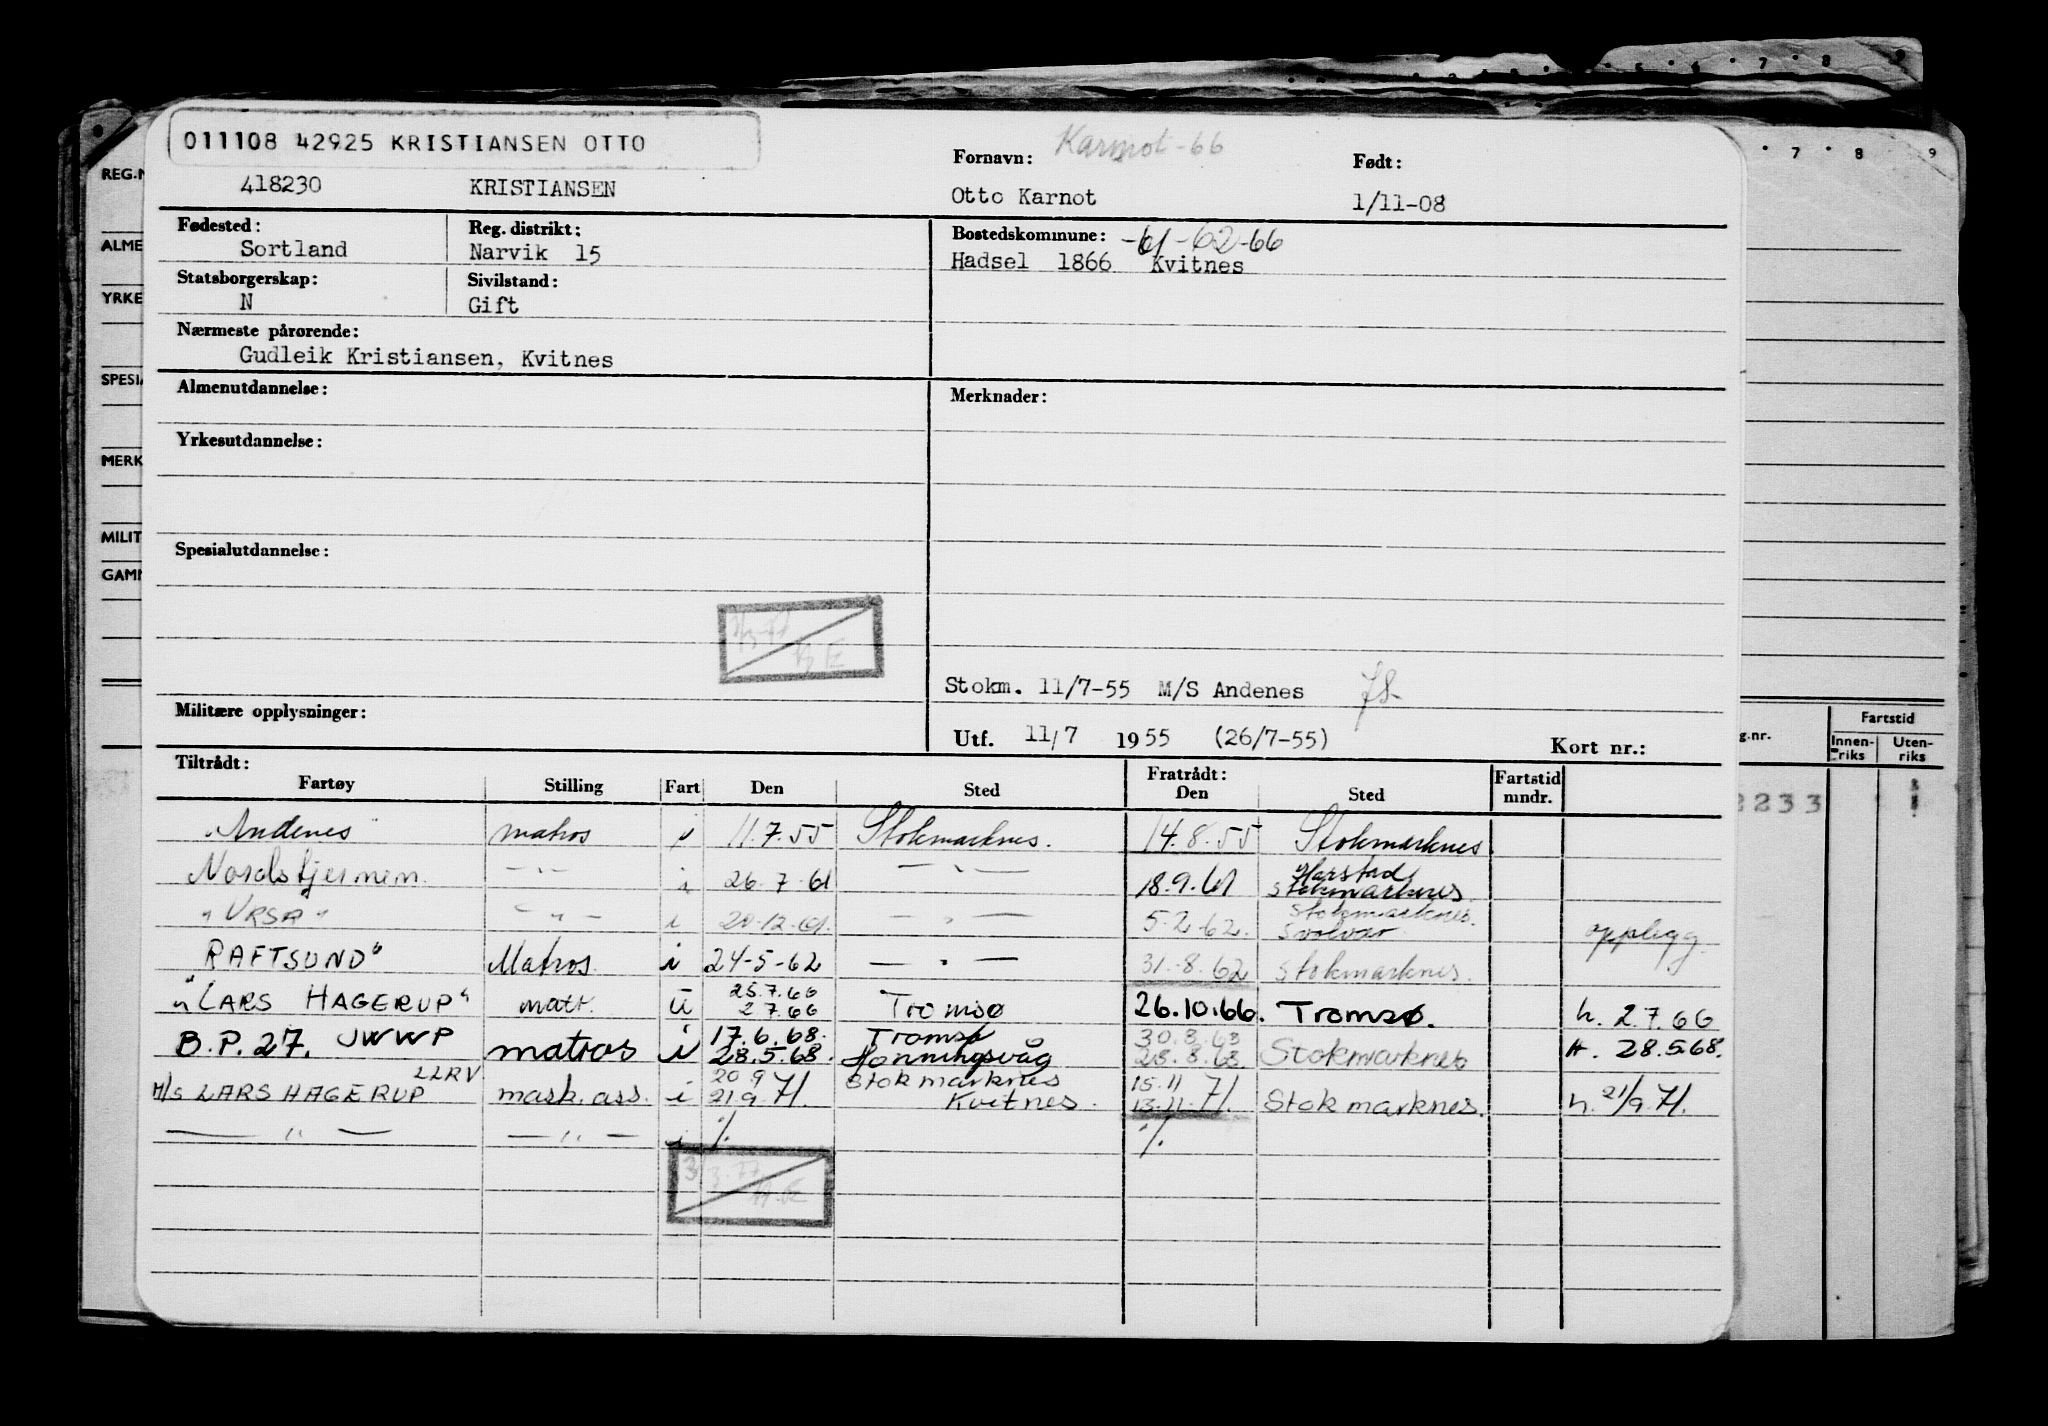 011108 42925 KRISTIANSEN OTTO
418230 KRISTIANSEN
Fornavn: Karnot-66 Født:
Otto Karnot 1/11-08
Fødested: Reg. distrikt: Bostedskommune: -61-62-66
Sortland Narvik 15 Hadsel 1866 Kvitnes
Statsborgerskap: Sivilstand:
N Gift
Nærmeste pårørende:
Gudleik Kristiansen, Kvitnes
Almenutdannelse: Merknader:
Yrkesutdannelse:
Spesialutdannelse:
Stokm. 11/7-55 M/S Andenes
Militære opplysninger:
Utf. 11/7 1955 (26/7-55) Kort nr.:
Tiltrådt: Fratrådt:
Fartøy Stilling Fart Den Sted Den Sted Fartstid mndr.
"Andenes" matros i 11.7.55 Stokmarknes. 14.8.55 Stokmarknes
Harstad
Nordstjernen — " — i 26.7-61 — " — 18.9.61 Stokmarknes.
Stokmarknes.
"URSA" — " — i 20-12-61. — " — 5-2-62. Svolvær opplegg
RAFTSUND" Matros i 24-5-62 — " — 31.-8.62 Stokmarknes.
25.7.66
"LARS HAGERUP" matr. ū 2 7.66 Tromsø 26.10.66. Tromsø. h. 2.7.66
17.6.68. Tromsø 30.8.68
B.P. 27. JWWP matros i 28.5.68. Honningsvåg 28.8.68 Stokmarknes H. 28.5.68.
LLRV 20 9 Stokmarknes 15.11
M/S LARS HAGERUP mask. ass. i 21.9.71. Kvitnes. 13.11.71. Stokmarknes. h. 21/9 71.
— " — — " — i ·/. ·/.
REG.N
ALME
YRKE
SPESIA
MERK
MILIT
GAMM
5 6 7 8 9
7 8 9
g.nr. Fartstid
Innen-riks Uten-riks
2233